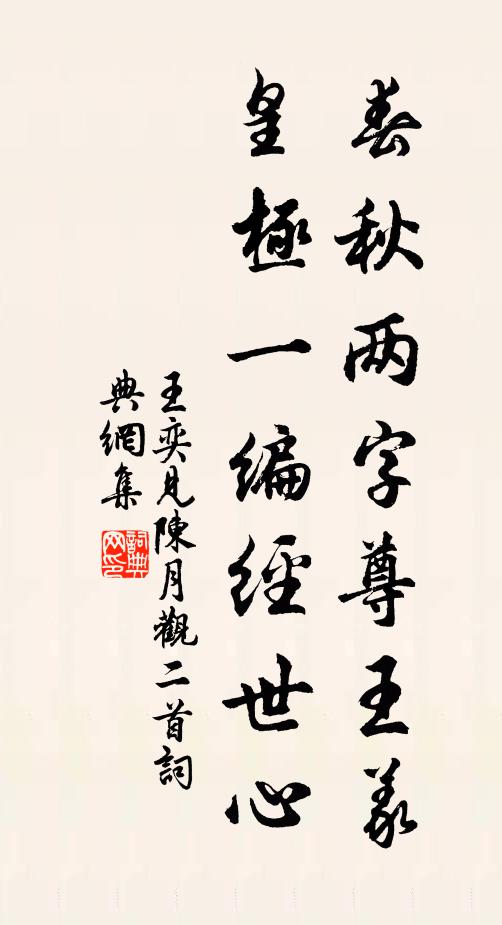 春秋两字尊王義
皇極一編經世心
王奕見陳月觀二首詞
典網集
詞典
网印